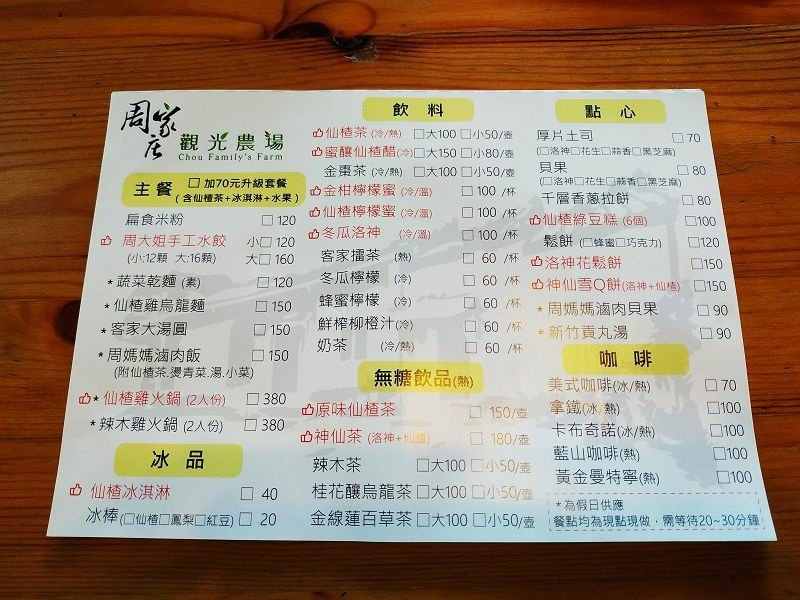 周家庄
觀光農場
Chou Family's Farm
主餐 □ 加70元升級套餐
(含仙楂茶+冰淇淋+水果)
扁食米粉 □120
周大姐手工水餃 小□120
(小:12顆 大:16顆) 大□160
*蔬菜乾麵(素) □120
*仙楂雞烏龍麵 □150
*客家大湯圓 □150
*周媽媽滷肉飯 □150
(附仙楂茶.燙青菜.湯.小菜)
*仙楂雞火鍋(2人份) □380
*辣木雞火鍋(2人份) □380
冰品
仙楂冰淇淋 □ 40
冰棒(□仙楂□鳳梨□紅豆) □ 20
飲料
仙楂茶(冷/熱) □大100 □小50/壺
蜜釀仙楂醋(冷) □大150 □小80/壺
金棗茶(冷/熱) □大100 □小50/壺
金柑檸檬蜜(冷/溫) □100 /杯
仙楂檸檬蜜(冷/溫) □100 /杯
冬瓜洛神(冷/溫) □100 /杯
客家擂茶(熱) □ 60 /杯
冬瓜檸檬(冷) □ 60 /杯
蜂蜜檸檬(冷) □ 60 /杯
鮮榨柳橙汁(冷) □ 60 /杯
奶茶(冷/熱) □ 60 /杯
無糖飲品(熱)
原味仙楂茶 □150/壺
神仙茶(洛神+仙楂) □180/壺
辣木茶 □大100 □小50/壺
桂花釀烏龍茶 □大100 □小50/壺
金線蓮百草茶 □大100 □小50/壺
點心
厚片土司 □ 70
(□洛神□花生□蒜香□黑芝麻)
貝果 □ 80
(□洛神□花生□蒜香□黑芝麻)
千層香蔥拉餅 □ 80
仙楂綠豆糕(6個) □100
鬆餅(□蜂蜜□巧克力) □120
洛神花鬆餅 □150
神仙雪Q餅(洛神+仙楂) □150
*周媽媽滷肉貝果 □ 90
*新竹貢丸湯 □ 90
咖啡
美式咖啡(冰/熱) □ 70
拿鐵(冰/熱) □100
卡布奇諾(冰/熱) □100
藍山咖啡(熱) □100
黃金曼特寧(熱) □100
*為假日供應
餐點均為現點現做,需等待20~30分鐘